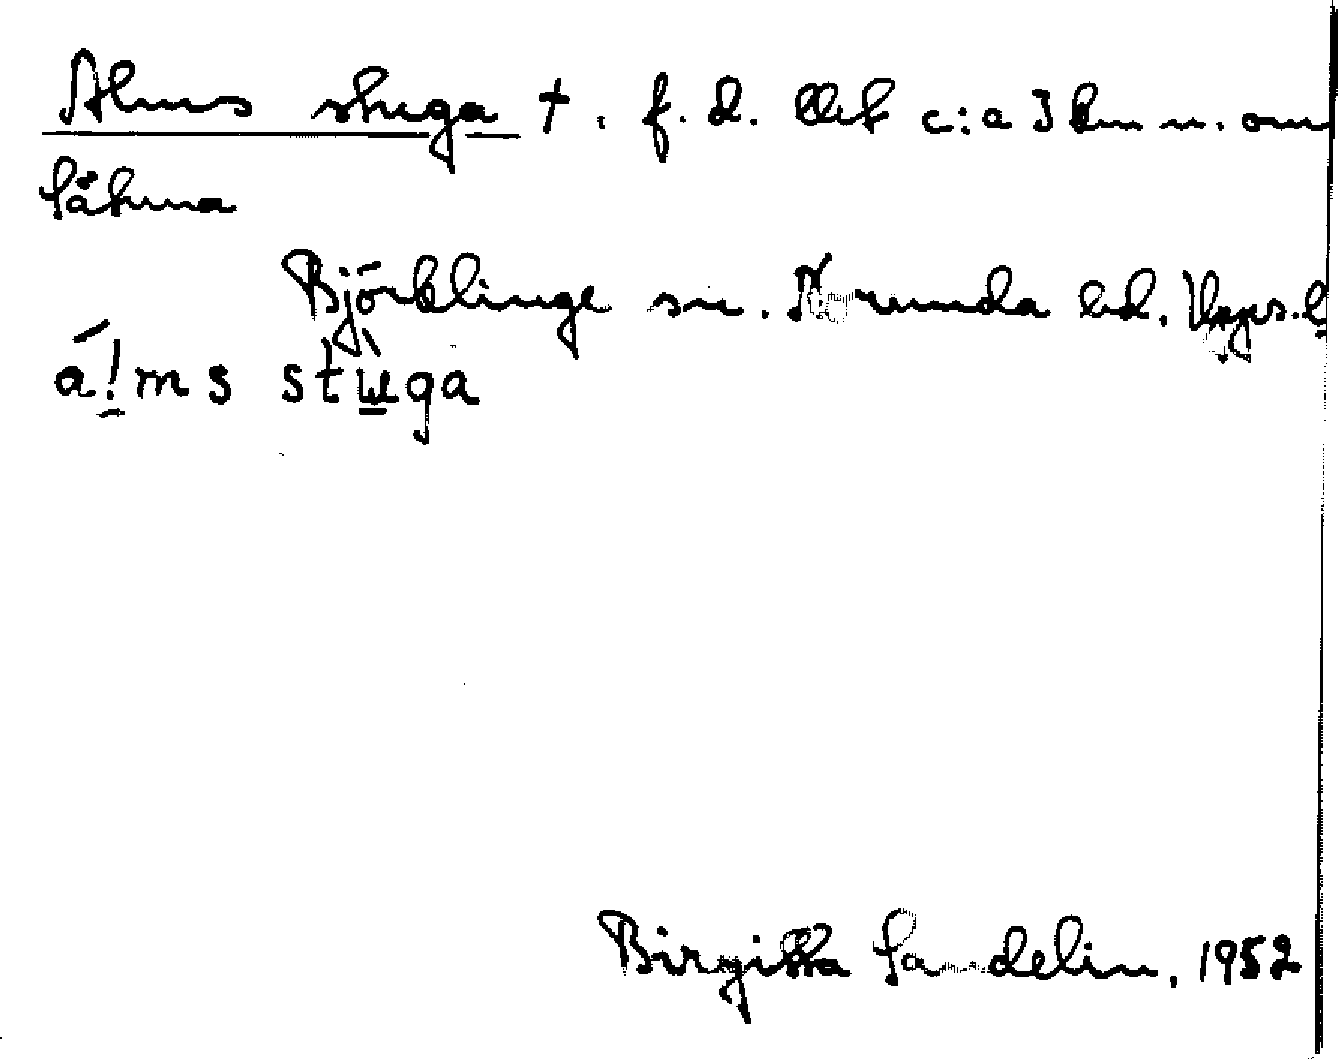 Alms stuga †. f.d. lht c:a 3 km n. om
Såtuna
Björklinge sn. Norunda hd. Upps. l
a!ms stuga
Birgitta Sandelin, 1952